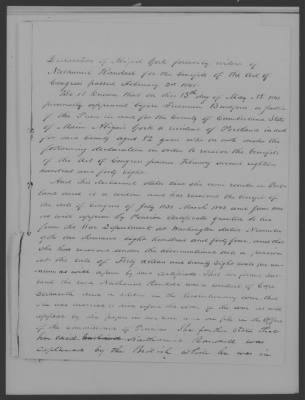 Declaration of Abigail Cork formerly widow of
Nathaniel Randall for the benefit of the Act of
Congress passed February 2nd 1848.
Be it known that on this 13th day of May
personally appeared before Freeman Bradford, a Justice
of the Peace in and for the County of Cumberland State
of Maine Abigail Cork a resident of Portland in and
for said County aged 82 years who on oath made the
following declaration in order to receive the benefits
of the Act of Congress passed February second eighteen
hundred and forty eight.
And this declarant states that she now resides in Port-
land and is a widow and has received the benefit of
the Acts of Congress of July 1838. March 1843 and June
as will appear by Pension Certificate granted to her
from the War Department at Washington dated
eight hundred and forty four, and that
she has received under the aforementioned Acts a pension
at the rate of Forty dollars and twenty eight cents per an-
num as will appear by said Certificate. That her former hus-
band the said Nathaniel Randall was a resident of Cape
Elizabeth and a soldier in the Revolutionary war, that
she was married to him before the close of the war as will
appear by the papers in her case now on file in the Office
of the Commissioner of Pensions. She further states that
her said husband Nathaniel Randall was
captured by the British while he was in